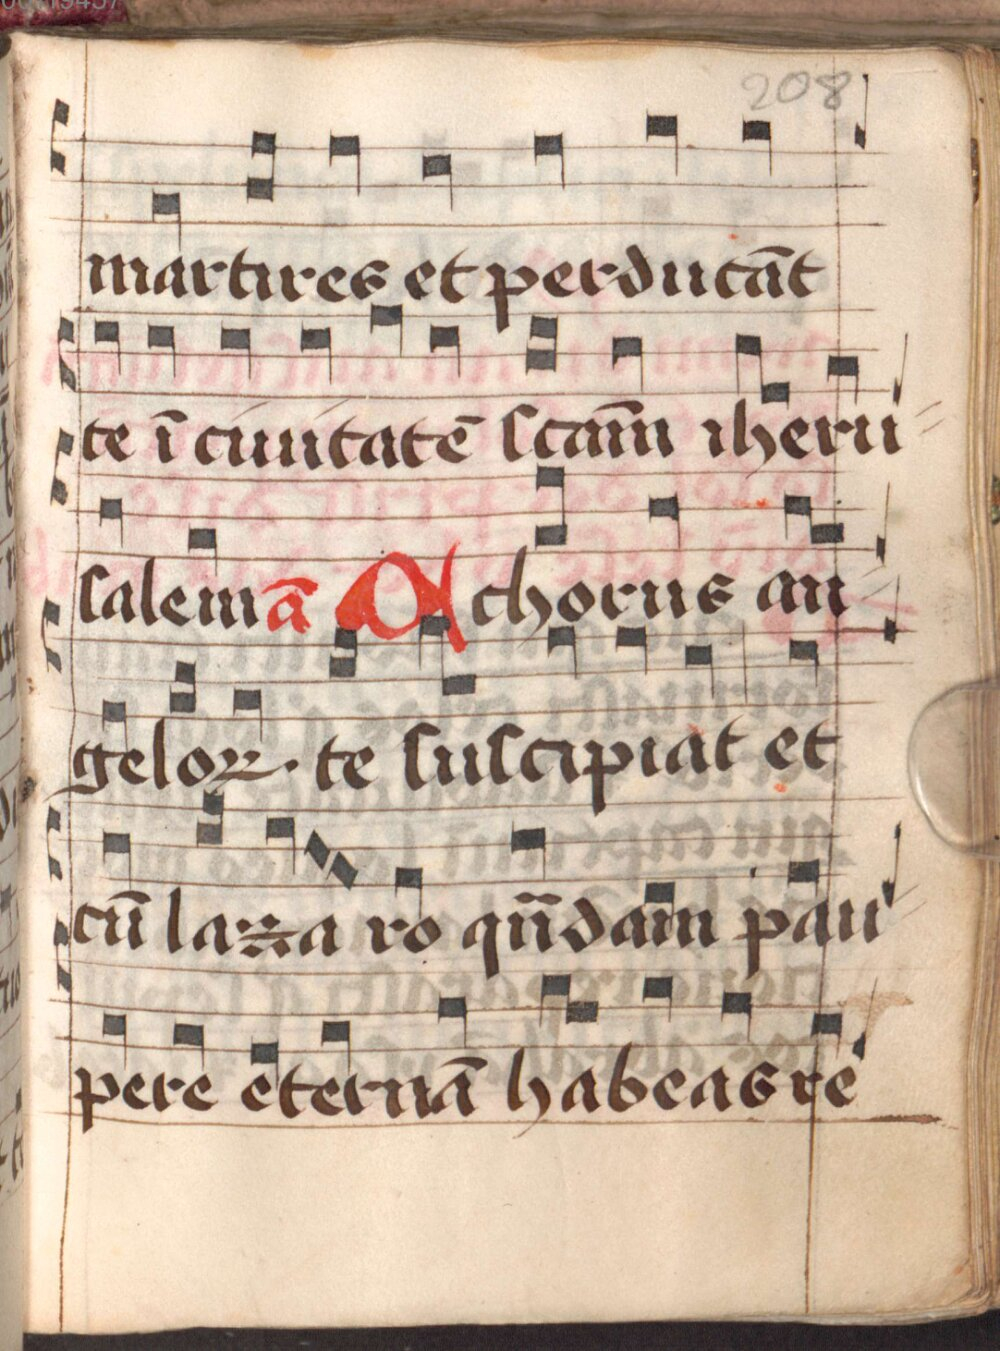 208
martires et perducāt
te ī ciuitatē scām iheru
salem ā Chorus an
geloꝝ. te suscipiat et
cū lazaro qn̄dam pau
pere eternā habeas re